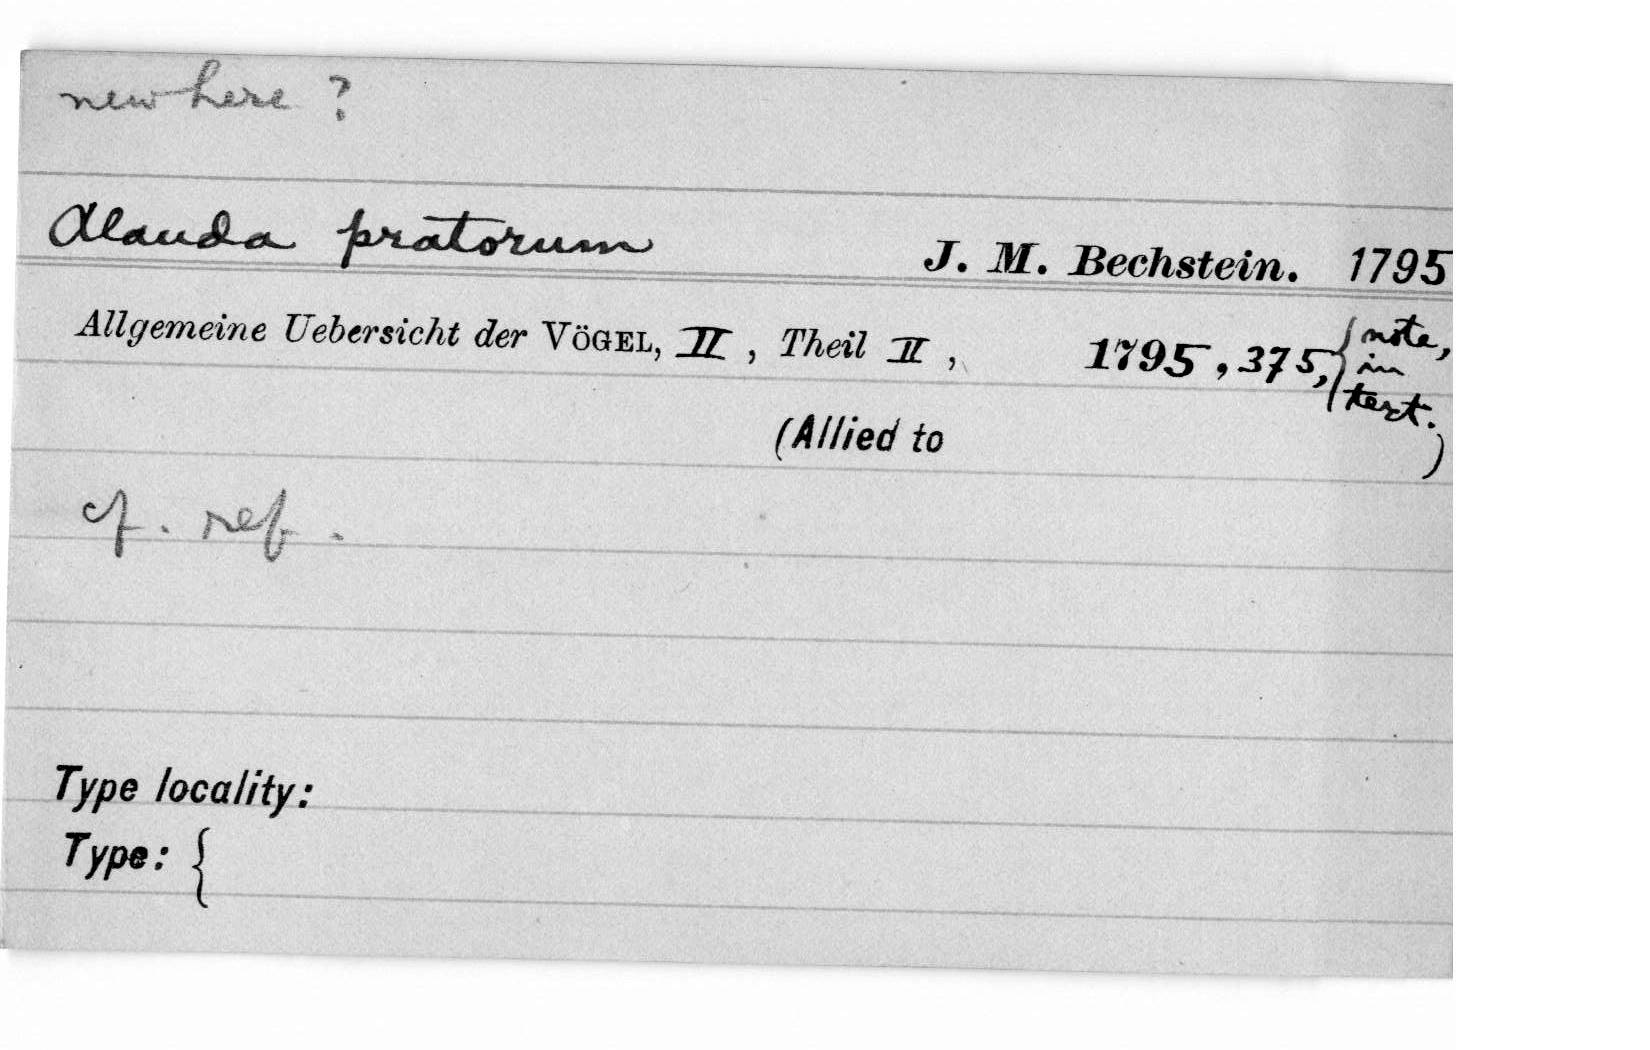 new here ?
Alauda pratorum J. M. Bechstein. 1795
Allgemeine Uebersicht der VÖGEL, II , Theil II , 1795, 375, { note, in text.
(Allied to )
cf. ref.
Type locality:
Type: {